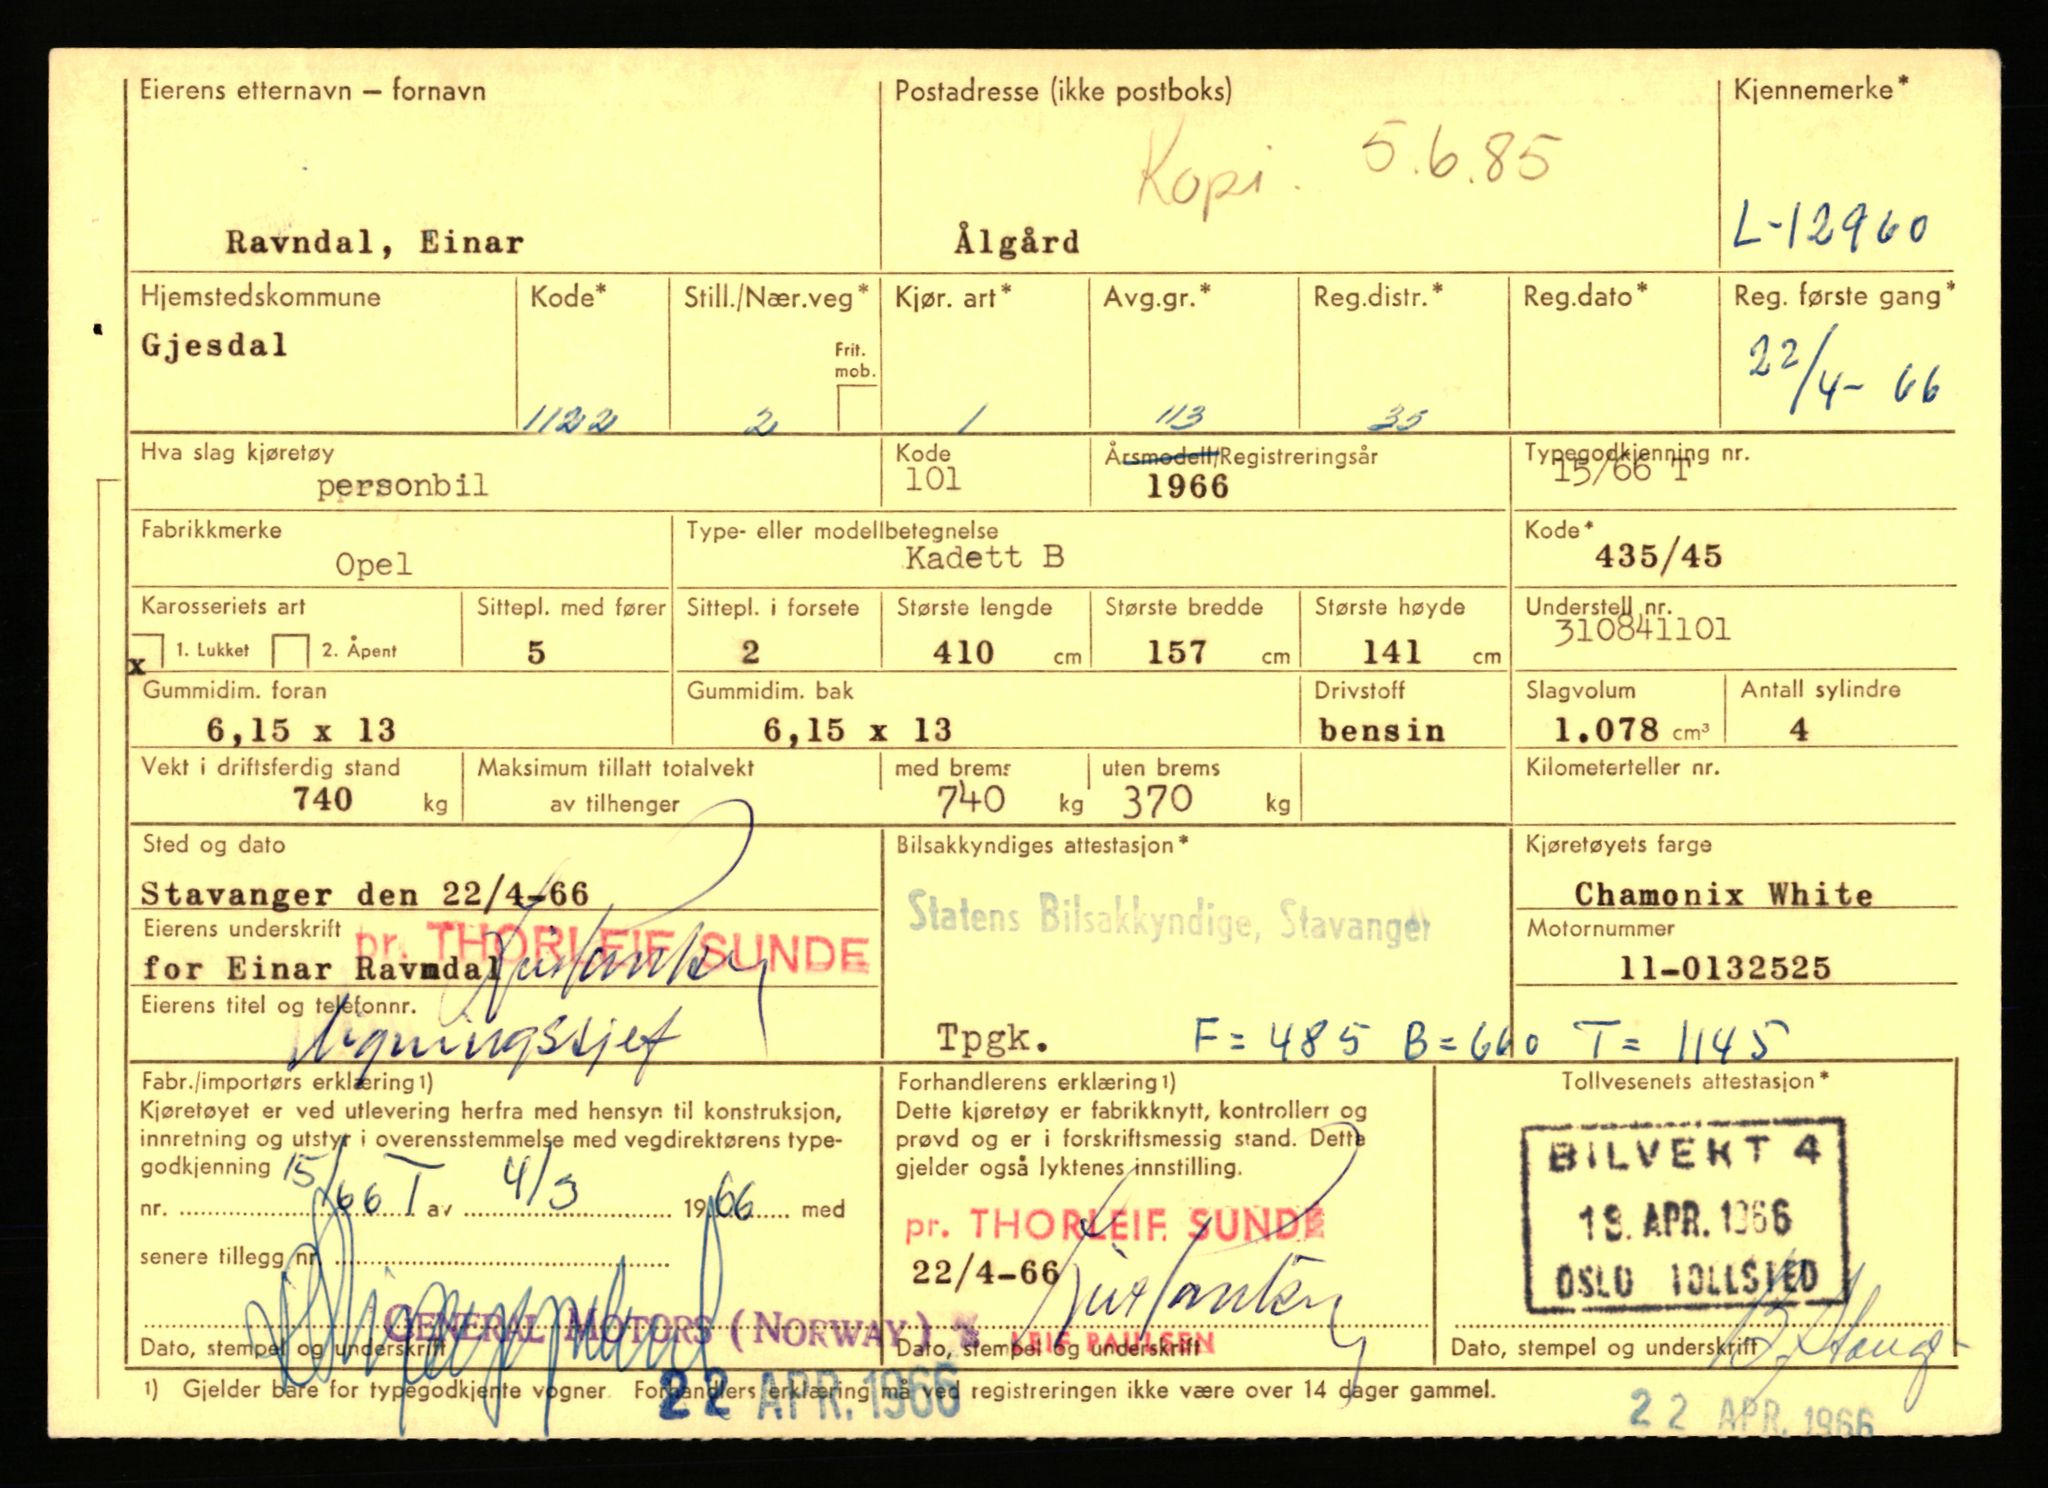 Eierens etternavn – fornavn
Postadresse (ikke postboks)
Kjennemerke*
Kopi. 5.6.85
Ravndal, Einar
Ålgård
L-12960
Hjemstedskommune
Kode*
Still./Nær.veg*
Kjør. art*
Avg.gr.*
Reg.distr.*
Reg.dato*
Reg. første gang*
Gjesdal
Frit. mob.
22/4- 66
1122
2
1
113
35
Hva slag kjøretøy
personbil
Kode
101
Årsmodell/Registreringsår
1966
Typegodkjenning nr.
15/66 T
Fabrikkmerke
Opel
Type- eller modellbetegnelse
Kadett B
Kode*
435/45
Karosseriets art
Sittepl. med fører
Sittepl. i forsete
Største lengde
Største bredde
Største høyde
Understell nr.
310841101
x 1. Lukket 2. Åpent
5
2
410 cm
157 cm
141 cm
Gummidim. foran
Gummidim. bak
Drivstoff
Slagvolum
Antall sylindre
6,15 x 13
6,15 x 13
bensin
1.078 cm³
4
Vekt i driftsferdig stand
740 kg
Maksimum tillatt totalvekt
av tilhenger
med brems
740 kg
uten brems
370 kg
Kilometerteller nr.
Sted og dato
Stavanger den 22/4-66
Bilsakkyndiges attestasjon*
Statens Bilsakkyndige, Stavanger
Kjøretøyets farge
Chamonix White
Eierens underskrift
pr. THORLEIF SUNDE
for Einar Ravndal
Motornummer
11-0132525
Eierens titel og telefonnr.
ligningssjef
Tpgk. F = 485 B = 660 T = 1145
Fabr./importørs erklæring 1)
Kjøretøyet er ved utlevering herfra med hensyn til konstruksjon,
innretning og utstyr i overensstemmelse med vegdirektørens type-
godkjenning
nr. 15/66 T av 4/3 1966 med
senere tillegg nr.
GENERAL MOTORS (NORWAY)
Dato, stempel og underskrift
22 APR. 1966
Forhandlerens erklæring 1)
Dette kjøretøy er fabrikknytt, kontrollert og
prøvd og er i forskriftsmessig stand. Dette
gjelder også lyktenes innstilling.
pr. THORLEIF SUNDE
22/4-66
LEIF PAULSEN
Dato, stempel og underskrift
Tollvesenets attestasjon*
BILVEKT 4
19. APR. 1966
OSLO TOLLSTED
Dato, stempel og underskrift
22 APR. 1966
1) Gjelder bare for typegodkjente vogner. Forhandlers erklæring må ved registreringen ikke være over 14 dager gammel.